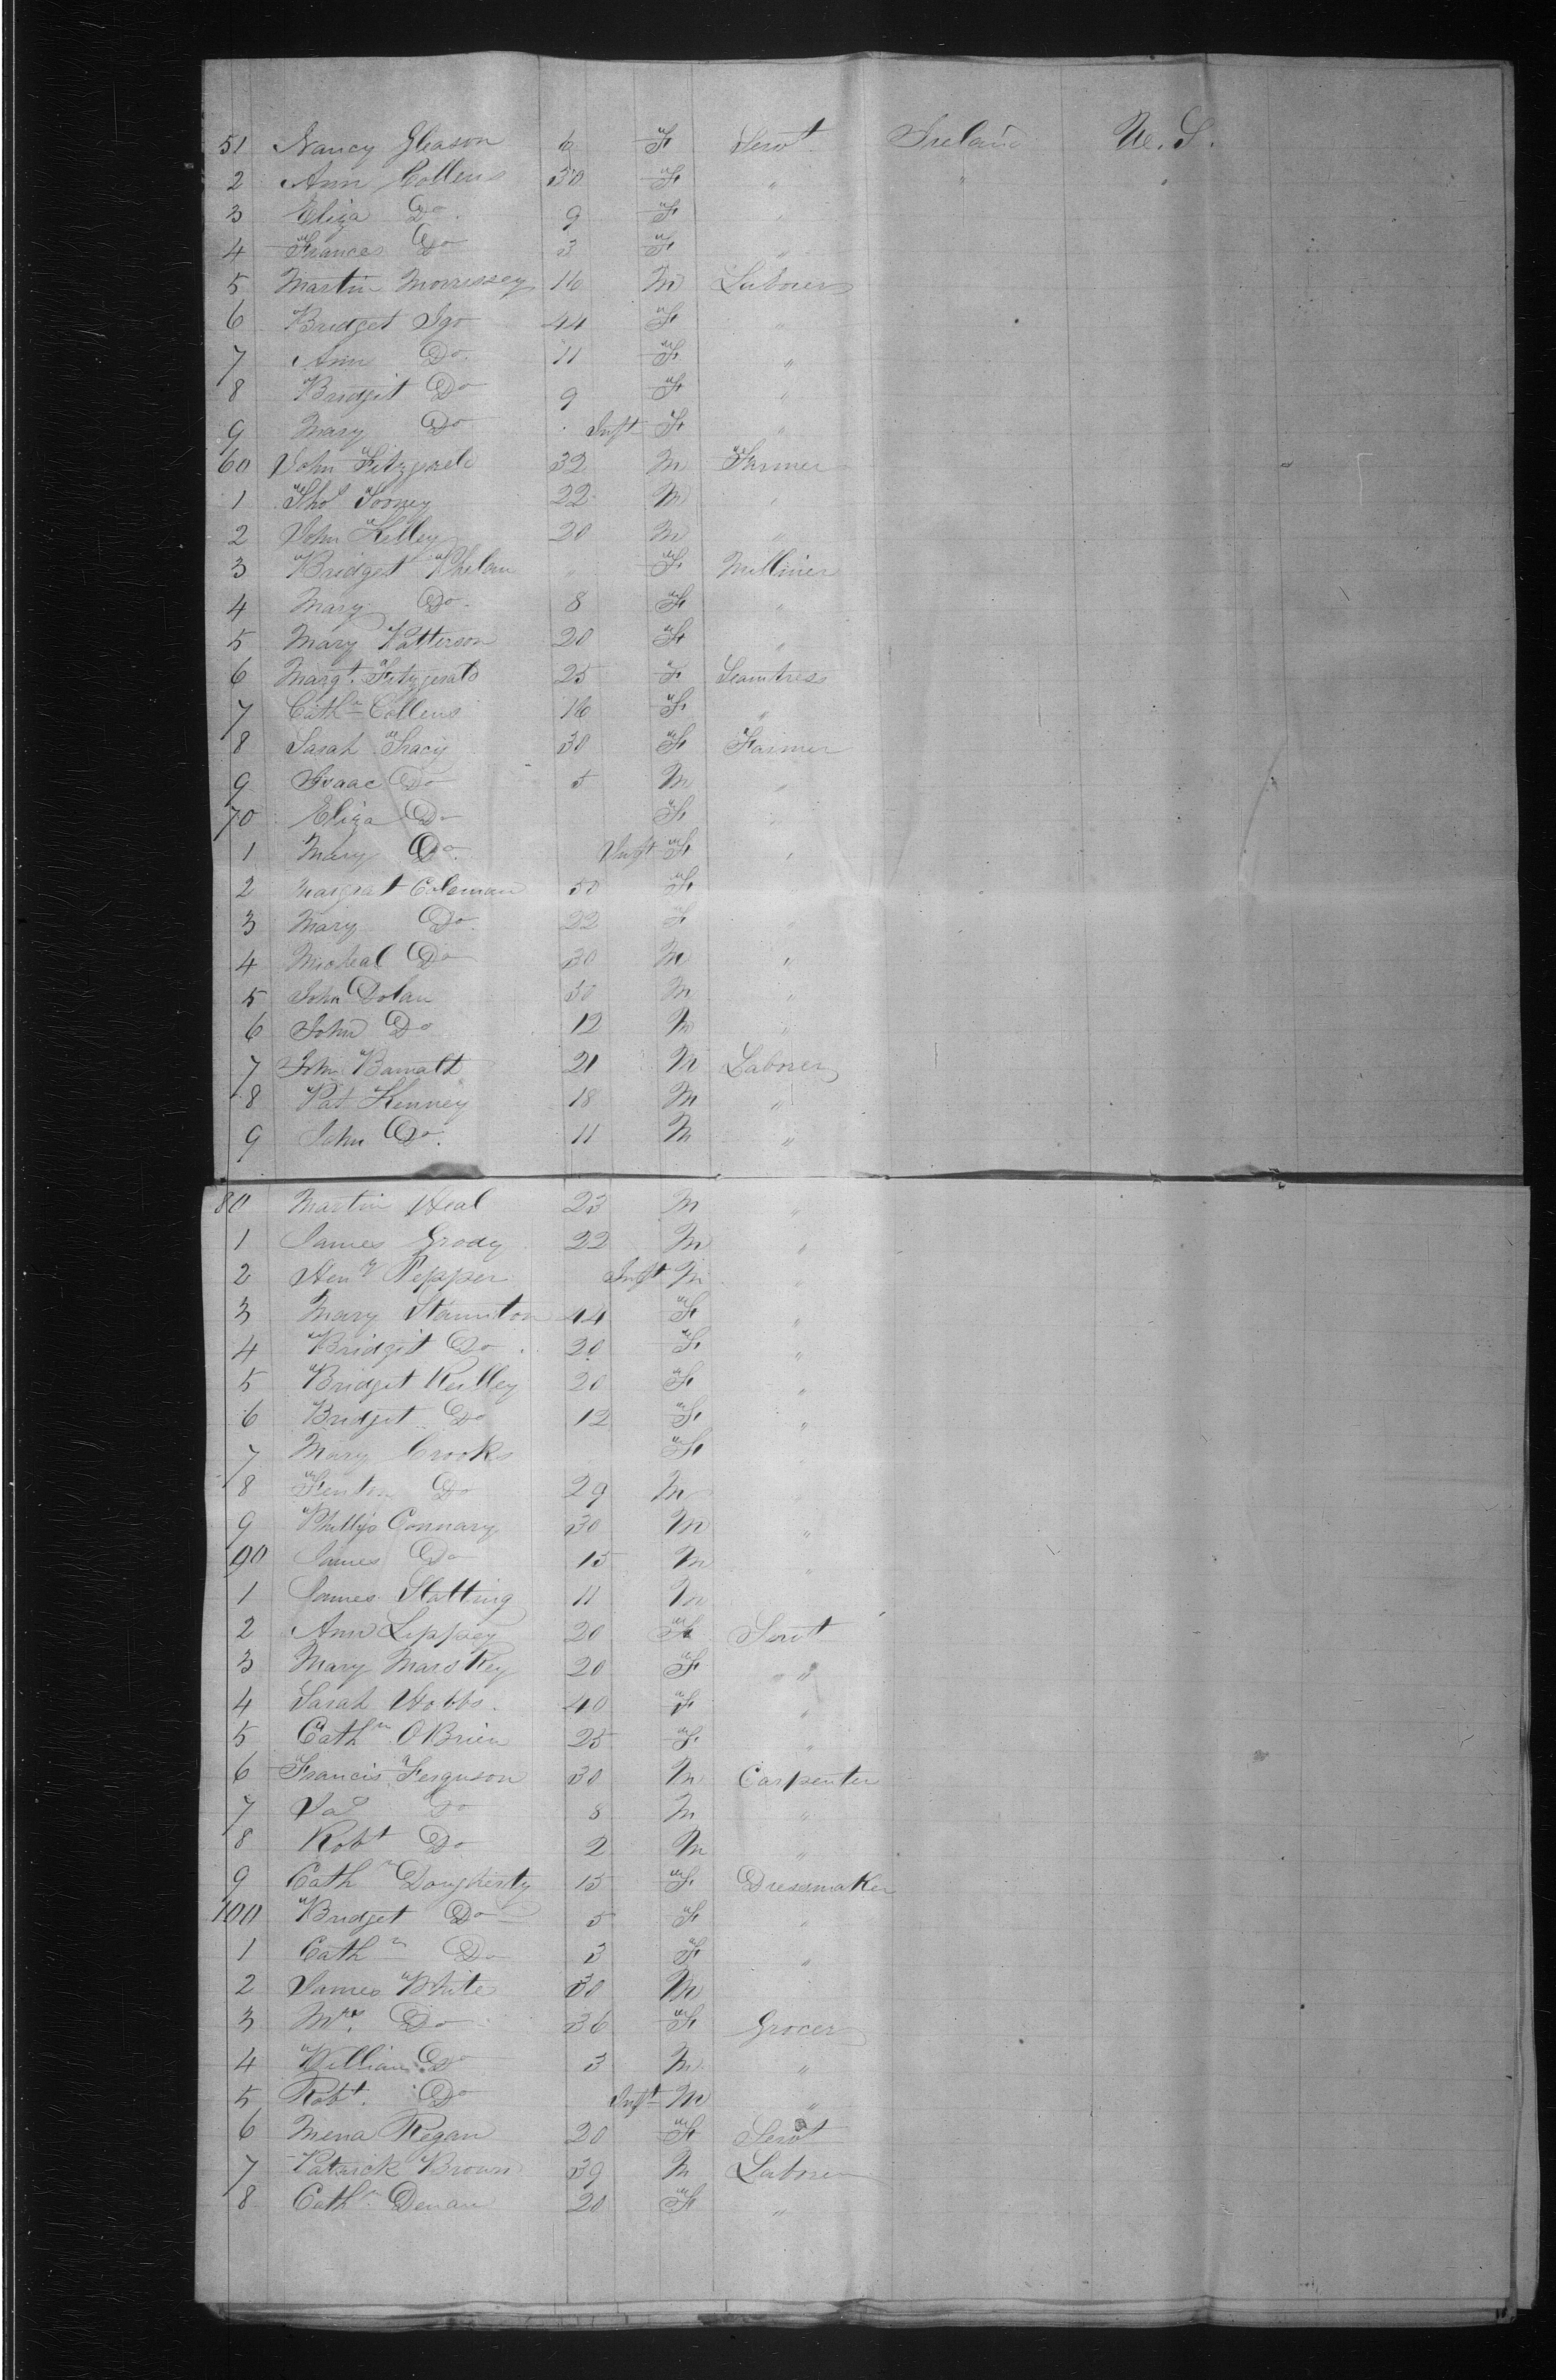 51 Nancy Gleason 6 F Servt Ireland U. S.
2 Ann Collens 30 F " " "
3 Eliza Do 9 F "
4 Frances Do 3 F "
5 Martin Morrissey 16 M Laborer
6 Bridget Igo 44 F "
7 Ann Do 11 F "
8 Bridgit Do 9 F "
9 Mary Do Inft F "
60 John Fitzgerald 32 M Farmer
1 Thos Tooney 22 M "
2 John Kelley 20 M "
3 Bridget Phelan " F Milliner
4 Mary Do 8 F "
5 Mary Patterson 20 F "
6 Margt. Fitzgerald 25 F Seamtress
7 Cathn Collens 16 F "
8 Sarah Tracy 30 F Farmer
9 Isaac Do 5 M "
70 Eliza Do F "
1 Mary Do. Inft F "
2 Margrat Coleman 50 F "
3 Mary Do 22 F "
4 Micheal Do 30 M "
5 John Dolan 50 M "
6 John Do 12 M "
7 John 21 M Laborer
8 Pat Kenney 18 M "
9 John Do. 11 M "
80 Martin Heal 23 M "
1 James Grody 22 M "
2 Heny Pepper Inft M "
3 Mary Staunton 44 F "
4 Bridgit Do 20 F "
5 Bridget Reilley 20 F "
6 Bridget Do 12 F "
7 Mary Crooks F "
8 Fenton Do 29 M
9 Phillip Connary 30 M "
90 James Do 15 M "
1 James Slatting 11 M
2 Ann Lippey 20 F Servt
3 Mary 20 F "
4 Sarah Hobbs 40 F "
5 Cathn OBrien 25 F "
6 Francis Ferguson 30 M Carpenter
7 Jas Do 8 M "
8 Robt Do 2 M "
9 Cathn Dougherty 15 F Dressmaker
100 Bridget Do 5 F "
1 Cathn Do 3 F "
2 James White 30 M
3 Mrs. Do 36 F Grocer
4 William Do 3 M "
5 Robt. Do Inft M "
6 Mena Regan 20 F Servt
7 Patrick Brown 39 M Laborer
8 Cathn Denan 20 F "